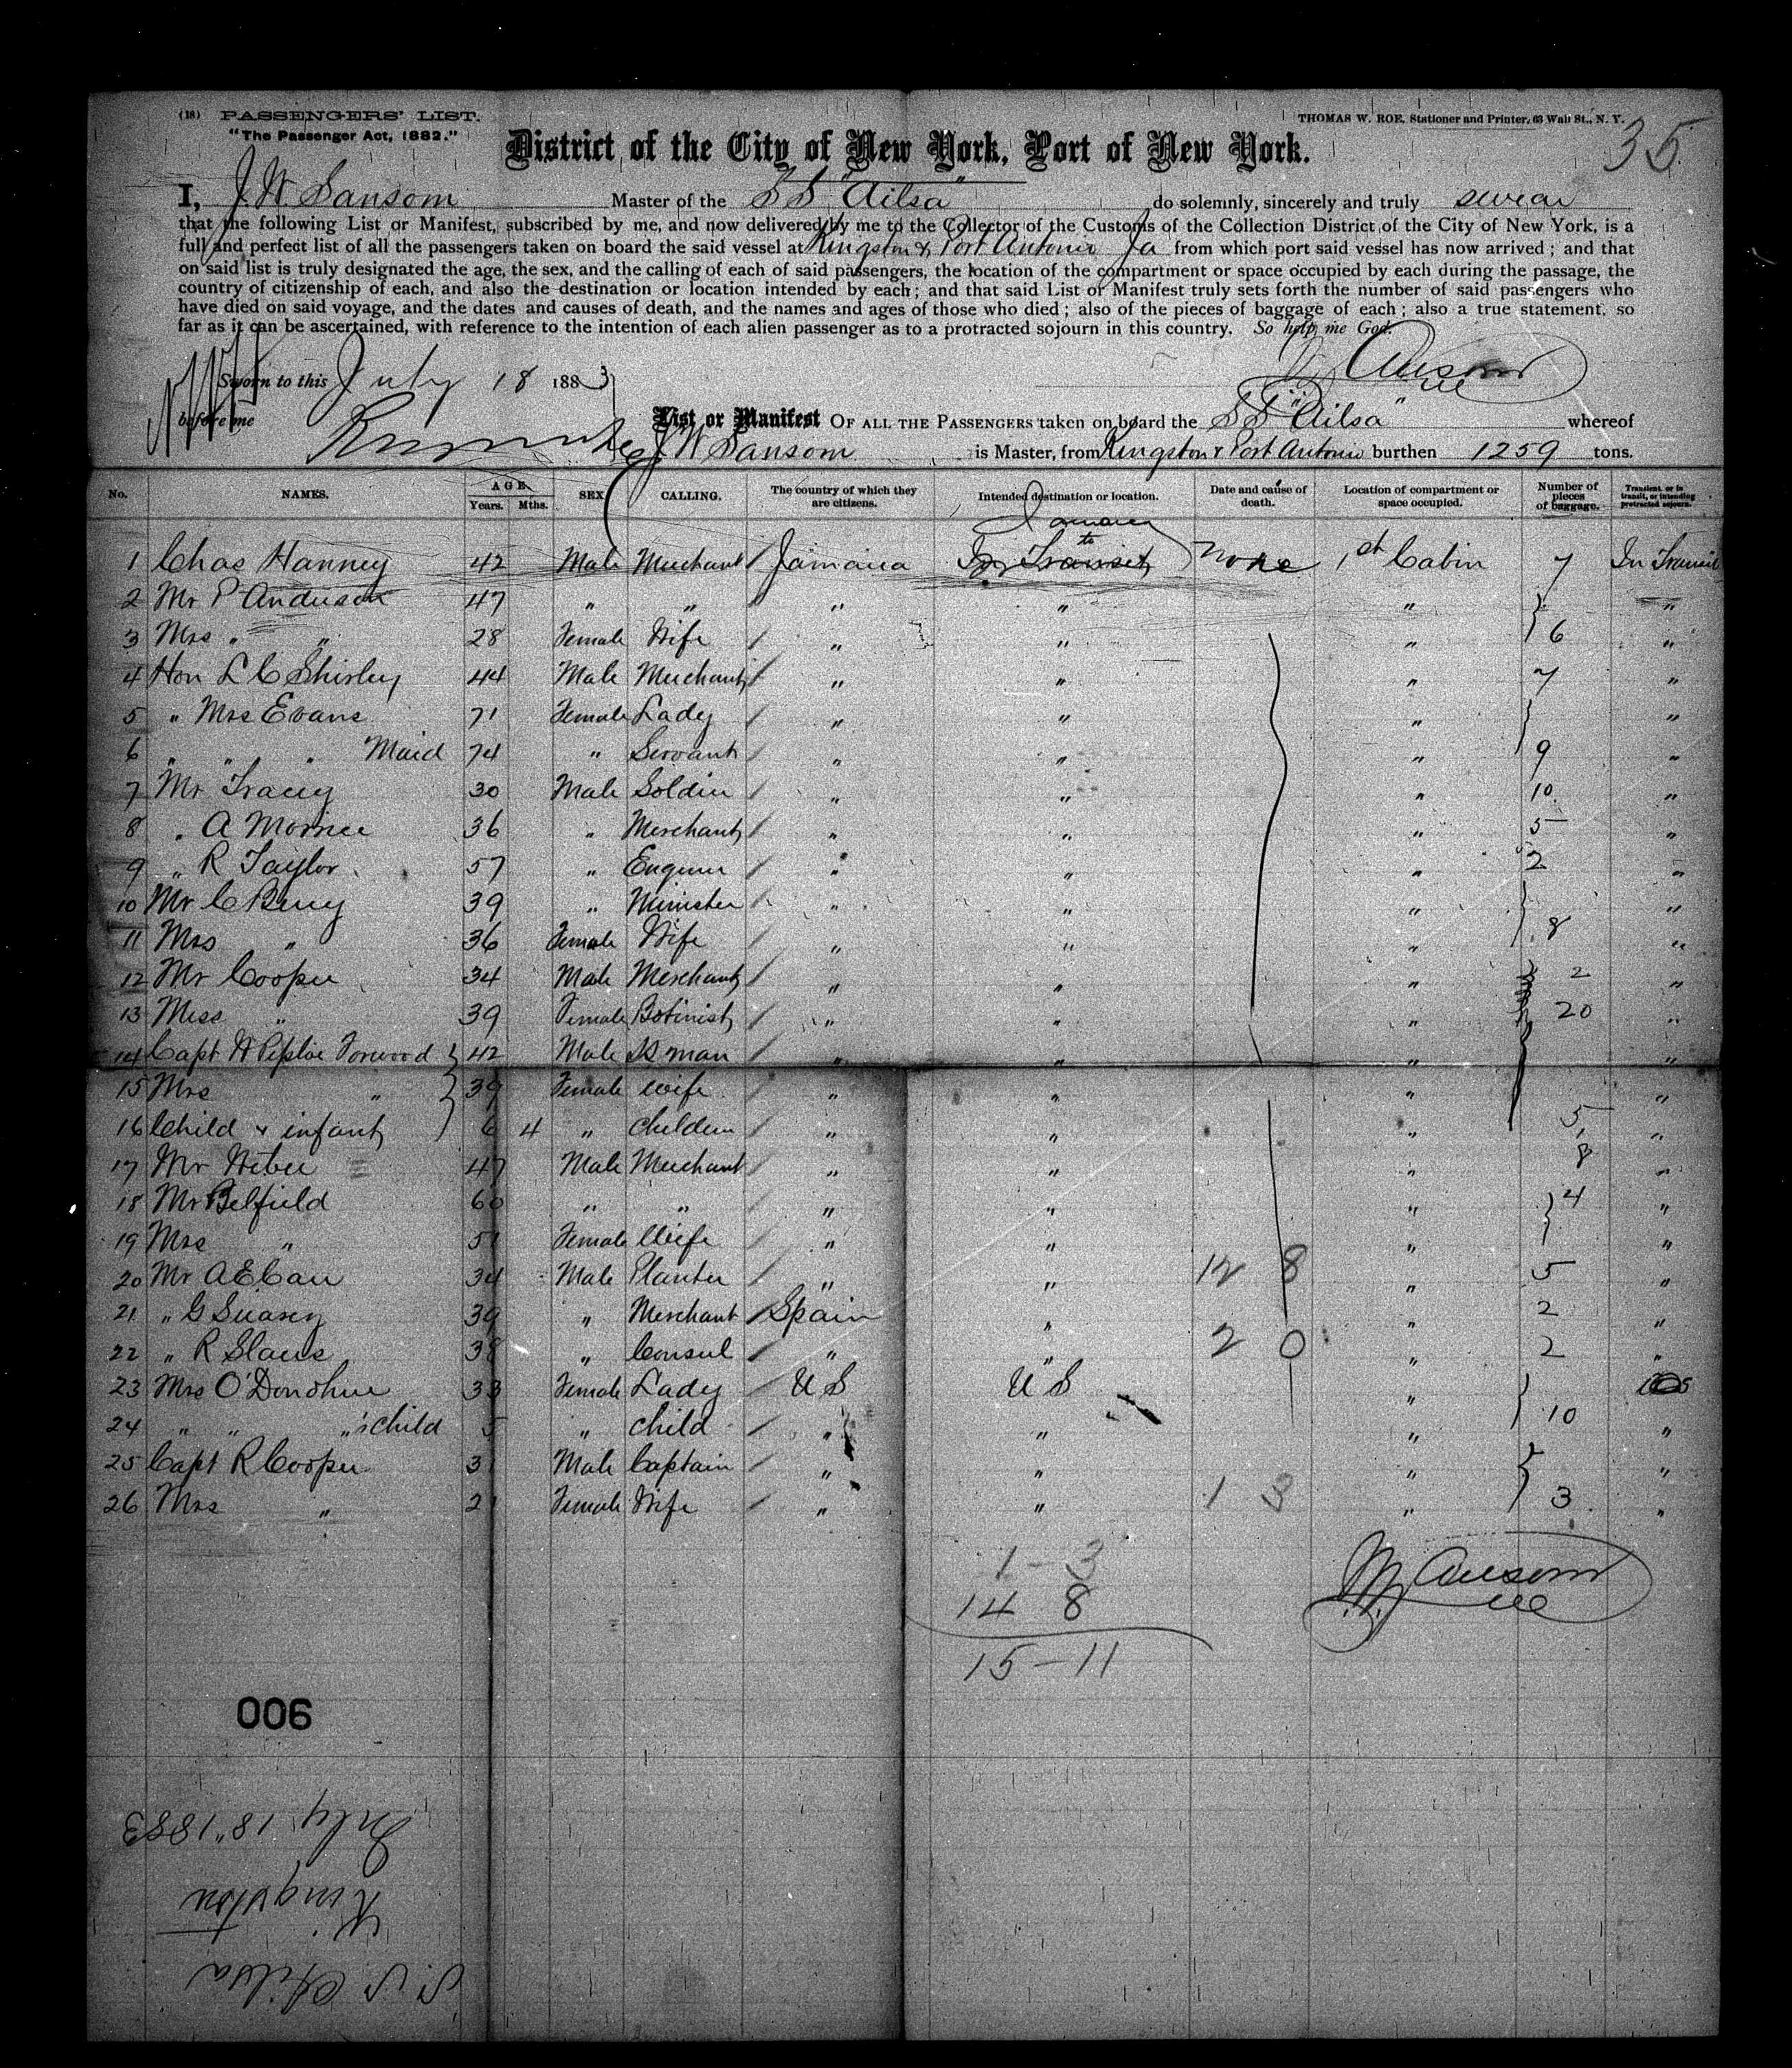 (18) PASSENGERS' LIST.
"The Passenger Act, 1882."
THOMAS W. ROE, Stationer and Printer, 63 Wall St., N. Y.
35
District of the City of New York, Port of New York.
I, J. W. Sansom Master of the S S "Ailsa" do solemnly, sincerely and truly swear
that the following List or Manifest, subscribed by me, and now delivered by me to the Collector of the Customs of the Collection District of the City of New York, is a
full and perfect list of all the passengers taken on board the said vessel at Kingston & Port Antonio Ja from which port said vessel has now arrived; and that
on said list is truly designated the age, the sex, and the calling of each of said passengers, the location of the compartment or space occupied by each during the passage, the
country of citizenship of each, and also the destination or location intended by each; and that said List or Manifest truly sets forth the number of said passengers who
have died on said voyage, and the dates and causes of death, and the names and ages of those who died; also of the pieces of baggage of each; also a true statement, so
far as it can be ascertained, with reference to the intention of each alien passenger as to a protracted sojourn in this country. So help me God.
Sworn to this July 18 1883
before me
List or Manifest OF ALL THE PASSENGERS taken on board the S S "Ailsa" whereof
J W Sansom is Master, from Kingston & Port Antonio burthen 1259 tons.
No. NAMES. AGE. Years. Mths. SEX CALLING. The country of which they are citizens. Intended destination or location. Date and cause of death. Location of compartment or space occupied. Number of pieces of baggage. Transient, or in transit, or intending protracted sojourn.
Jamaica
1 Chas Hanney 42 Male Merchant Jamaica In Transit to none 1st Cabin 7 In Transit
2 Mr P Anderson 47 " " " " " "
3 Mrs " " 28 Female Wife " " " 6 "
4 Hon L C Shirley 44 Male Merchant " " " 7 "
5 " Mrs Evans 71 Female Lady " " " "
6 " " " Maid 74 " Servant " " " 9 "
7 Mr Tracey 30 Male Soldier " " " 10 "
8 " A 36 " Merchant " " " 5 "
9 " R Taylor 57 " Engineer " " " 2 "
10 Mr C Berry 39 " Minister " " " "
11 Mrs " 36 Female Wife " " " 8 "
12 Mr Cooper 34 Male Merchant " " " 2 "
13 Miss " 39 Female Botinist " " " 20 "
14 Capt W Peploe Forwood 42 Male " " " "
15 Mrs " 39 Female Wife " " " "
16 Child & infant 6 4 " Children " " " 5 "
17 Mr Weber 47 Male Merchant " " " 8 "
18 Mr Belfield 60 " " " " " 4 "
19 Mrs " 51 Female Wife " " " "
20 Mr A E Carr 34 Male Planter " " 12 8 " 5 "
21 " G 39 " Merchant Spain " " 2 "
22 " R 38 " Consul " " 2 0 " 2 "
23 Mrs O'Donohue 33 Female Lady U S U S "
24 " " "'s child 5 " child " " " 10 "
25 Capt R Cooper 31 Male Captain " " " "
26 Mrs " 21 Female Wife " " 1 3 " 3 "
1 - 3
14 8
15 - 11
006
July 18" 1883
Kingston
S. S Ailsa